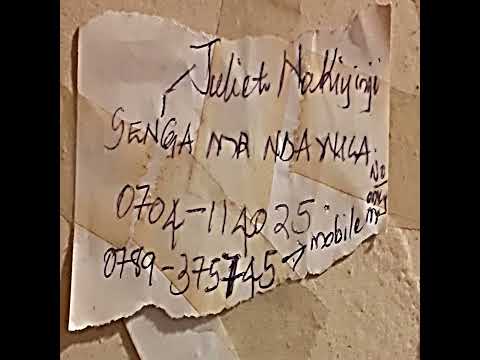 Juliet Nakiyinji
SENGA MA NDAWULA.
0704-114025.
0789-375745 → mobile